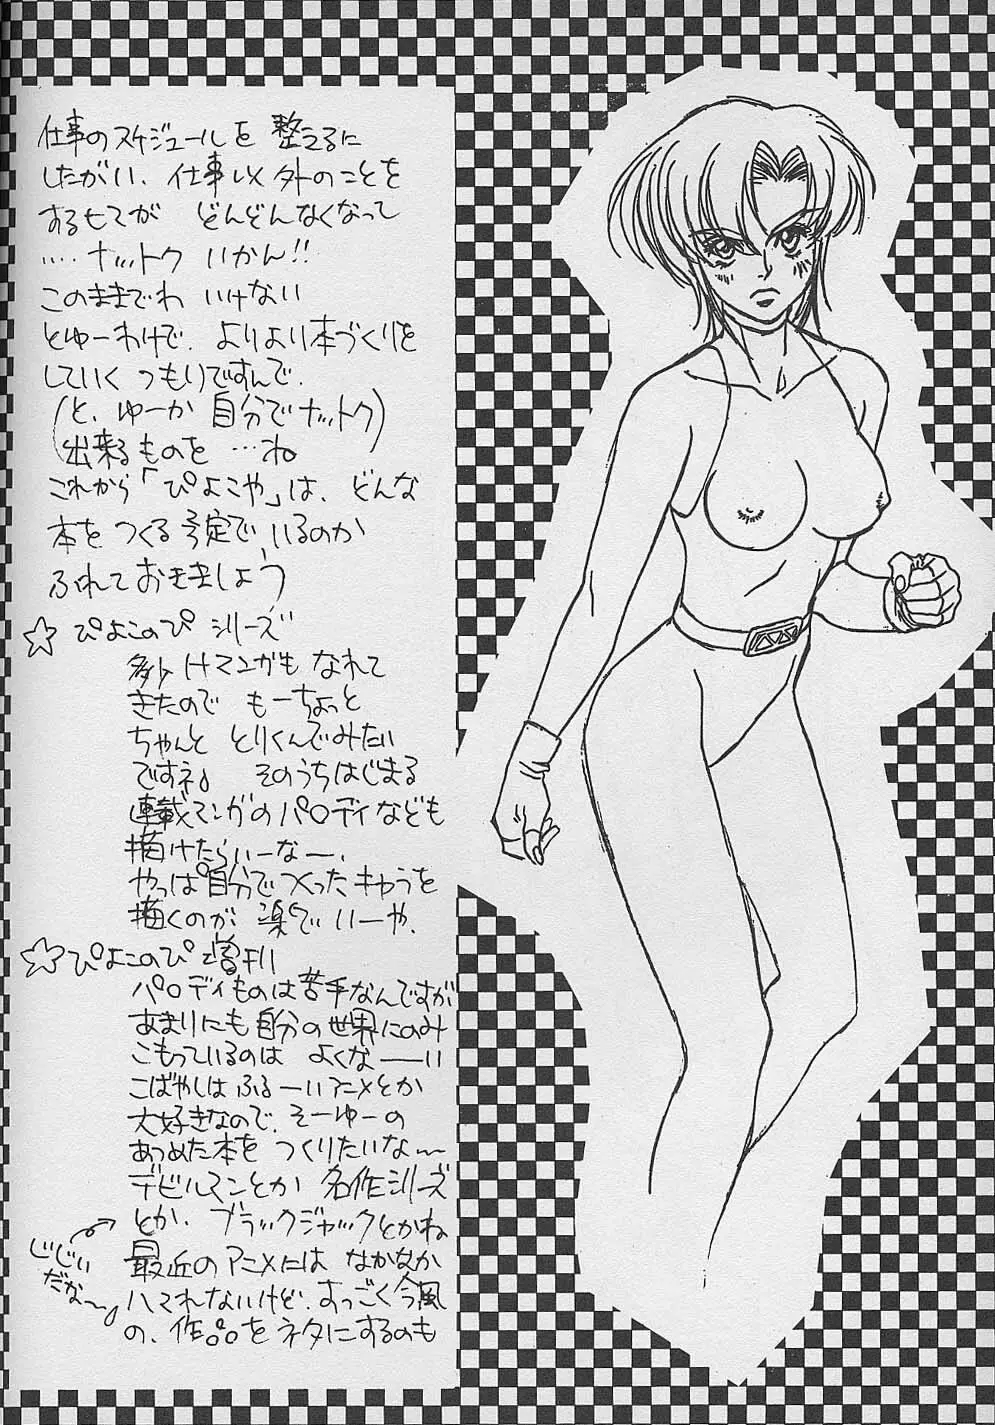 仕事のスケジュールを 整えるに
したがい、仕事以外のことを
するヒマが どんどんなくなって
‥‥ナットク いかん!!
このままでわ いけない
とゆーわけで、よりより本づくりを
していく つもりですんで、
(と、ゆーか 自分でナットク
出来るものを …ね)
これから「ぴよこや」は、どんな
本を つくる予定で、いるのか
ふれておきましょう
☆ ぴよこのぴ シリーズ
マンガも なれて
きたので もーちょっと
ちゃんと とりくんでみたい
ですネ。 そのうちはじまる
連載マンガのパロディなども
描けたらいーなー、
やっぱ自分でつくったキャラを
描くのが 楽でいーや、
☆ ぴよこのぴ 増刊
パロディものは苦手なんですが
あまりにも自分の世界にのみ
こもっているのは よくなーーい
こばやしは ふるーいアニメとか
大好きなので、そーゆーの
あつめた本を つくりたいな〜
デビルマンとか 名作シリーズ
とか、ブラックジャックとかね
じじい
だな〜
最近のアニメには なかなか
ハマれないけど、すっごく今風
の、作品をネタにするのも